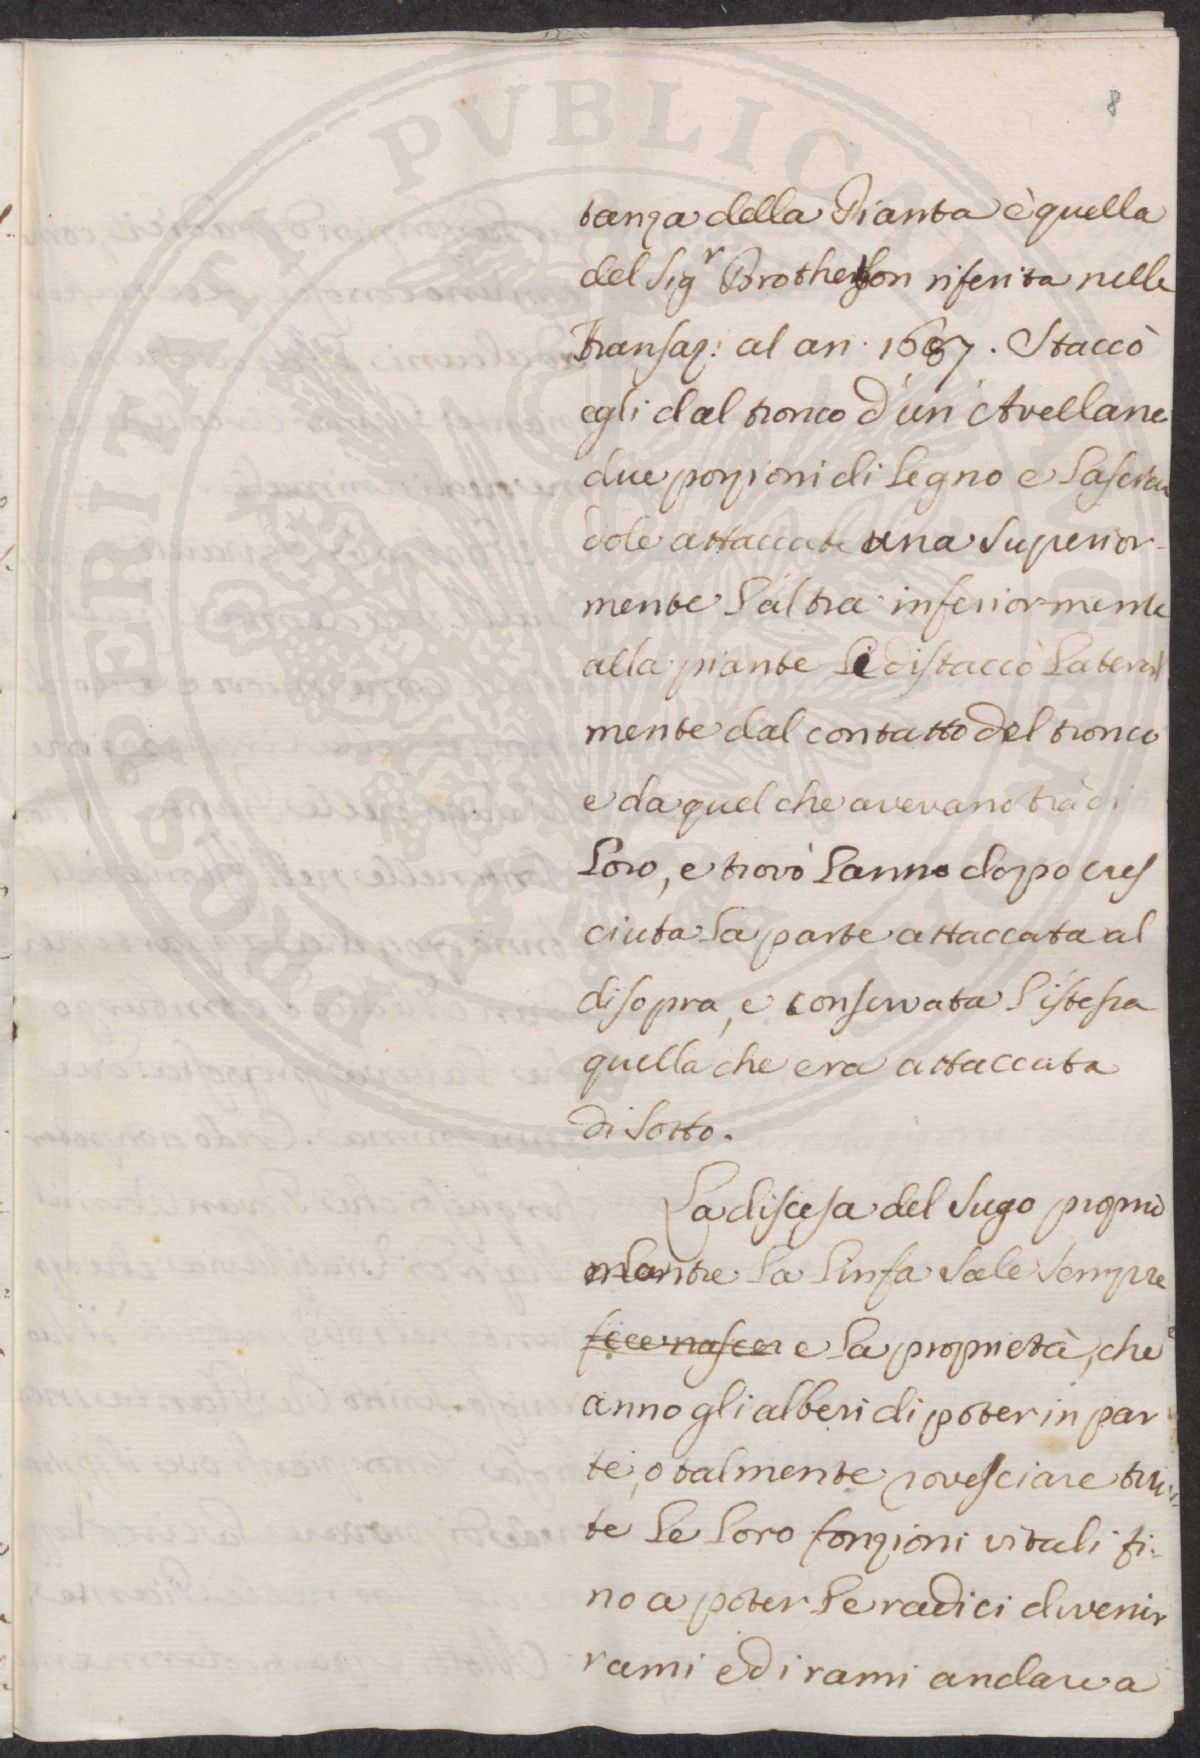 8
tanza della Pianta è quella
del Sigr Brotherson riferita nelle
Transaz: al an. 1687. Staccò
egli dal tronco d'un Avellane
due porzioni di legno e lascian
dole attaccate una superior-
mente l'altra inferiormente
alla piante le distaccò lateral
mente dal contatto del tronco
e da quel che avevano trà di
loro, e trovò lanno dopo cres
ciuta la parte attaccata al
disopra, e conservata l'istessa
quella che era attaccata
di sotto.
La discesa del sugo proprio
mentre la linfa sale sempre
fece nascer e la proprietà, che
anno gli alberi di poter in par
te, o talmente rovesciare tut
te le loro fonzioni vitali fi-
no a poter le radici divenir
rami ed i rami andare a
PROSPERITATI PVBLICAE AVGENDAE